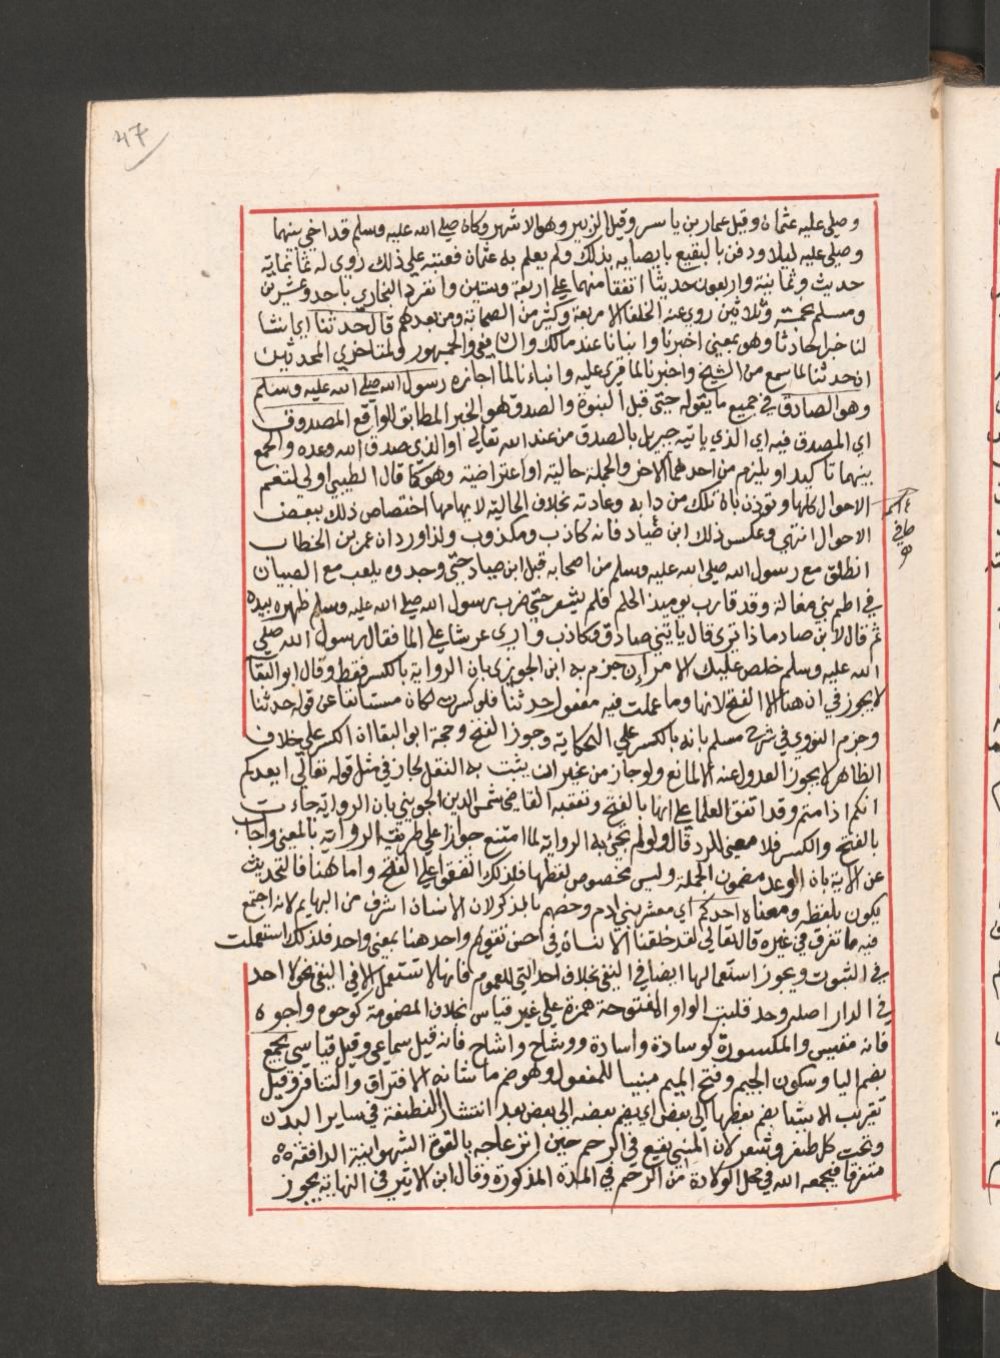 47
وصلى عليه عثمان وقيل عمار بن ياسر وقيل الزبير وهو الاشهر وكان صلى الله عليه وسلم قد اخي بينهما
وصلى عليه ليلا ودفن بالبقيع بايصايه بذلك ولم يعلم به عثمان فعتبه علي ذلك روي له ثمانماية
حديث وثمانية واربعون حديثا اتفقا منهما علي اربعة وستين وانفرد البخاري باحد وعشرين
ومسلم بخمسة وثلاثين روي عنه الخلفا الاربعة وكثير من الصحابة ومن بعدهم قال حدثنا اي انشا
لنا خبرا حادثا وهو بمعني اخبرنا وانبانا عند مالك والشافعي والجمهور ولمتاخري المحدثين
ان حدثنا لما سمع من الشيخ واخبرنا لما قري عليه وانباءنا لما اجازه رسول الله صلي الله عليه وسلم
وهو الصادق في جميع ما يقوله حتي قبل النبوة والصدق هو الخبر المطابق للواقع المصدوف
اي المصدق فيه اي الذي ياتيه جبريل بالصدق من عند الله تعالي او الذي صدق الله وعده والجمع
بينهما تاكيد او يلزم من احدهما الاخر والجملة حالية او اعتراضية وهو كما قال الطيبي اولي لتعم
الاحوال كلها وتوذن بان تلك من دابه وعادته بخلاف الحالية لايهامها اختصاص ذلك ببعض
الاحوال انتهي وعكس ذلك ابن صياد فانه كاذب ومكذوب ولذا ورد ان عمر بن الخطاب
انطلق مع رسول الله صلي الله عليه وسلم من اصحابه قبل ابن صياد حتي وجدوه يلعب مع الصبيان
في اطم بني مغالة وقد قارب يوميذ الحلم فلم يشعر حتي ضرب رسول الله صلي الله عليه وسلم ظهره بيده
ثم قال لابن صاد ماذا تري قال ياتيني صادق وكاذب واري عرشا علي الما فقال رسول الله صلي
الله عليه وسلم خلص عليك الامر إن جزم به ابن الجوزي بان الرواية بالكسر فقط وقال ابو البقا
لا يجوز في ان هنا الا الفتح لانها وما عملت فيه مفعول حدثنا فلو كسرت لكان مستانفا عن قوله حدثنا
وجزم النووي في شرح مسلم بانه بالكسر علي الحكاية وجوز الفتح وحجة ابو البقا ان الكسر علي خلاف
الظاهر لا يجوز العدول عنه الا لمانع ولو جاز من غير ان يثبت به النقل لجاز في مثل قوله تعالي ايعدكم
انكم اذا متم وقد اتفق العلما علي انها بالفتح وتعقبه القاضي شمس الدين الجويني بان الرواية جاءت
بالفتح والكسر فلا معني للرد قال ولو لم تجئ به الرواية لما امتنع جوازا علي طريقة الرواية بالمعني واجاب
عن الاية بان الوعد مضمون الجملة وليس مخصوص لفظها فلذلك اتفقوا علي الفتح واما هنا فالتحديث
يكون بلفظه ومعناه احدكم اي معشر بني ادم وخصهم بالذكر لان الانسان اشرف من البهايم لانه اجتمع
فيه ما تفرق في غيره قال تعالي لقد خلقنا الانسان في احسن تقويم واحد هنا بمعني واحد فلذلك استعملت
في الثبوت ويجوز استعمالها ايضا في النفي بخلاف احد التي للعموم فانها لا تستعمل الا في النفي نحو لا احد
في الدار اصله وحد قلبت الواو المفتوحة همزة علي غير قياس بخلاف المضمومة كوجوه واجوه
فانه مقيس والمكسورة كوسادة واسادة ووشاح واشاح فانه قيل سماعي وقيل قياسي يجمع
بضم اليا وسكون الجيم وفتح الميم مبنيا للمفعول وهو ضم ما شانه الافتراق والتنافر وقيل
تقريب الاشيا بضم بعضها الي بعض اي يضم بعضه الي بعض بعد انتشار النطفة في ساير البدن
وتحت كل ظفر وشعر لان المني يقع في الرحم حين انزعاجه بالقوة الشهوانية الدافقة
متفرقا فيجمعه الله في محل الولادة من الرحم في المدة المذكورة وقال ابن الاثير في النهاية يجوز